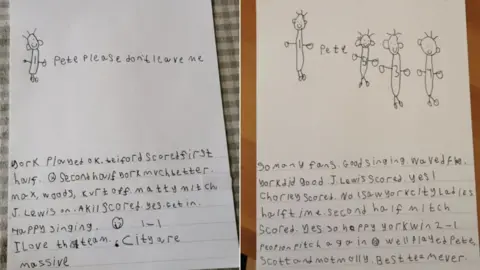 Pete please don't leave me
york played ok. telford scored first
half. @ second half york much better.
max, woods, kurt off. matty mitch
J. Lewis on. Akil scored yes. get in.
Happy singing. 1-1
I Love the team. City are
massive
Pete
So many fans. Good singing waved
york did good J. Lewis scored. yes!
Chorley scored. No I saw york city ladies
half time. second half mitch
scored. yes. so happy york win 2-1
people on pitch again well played Pete,
Scott and not molly. Best team ever.